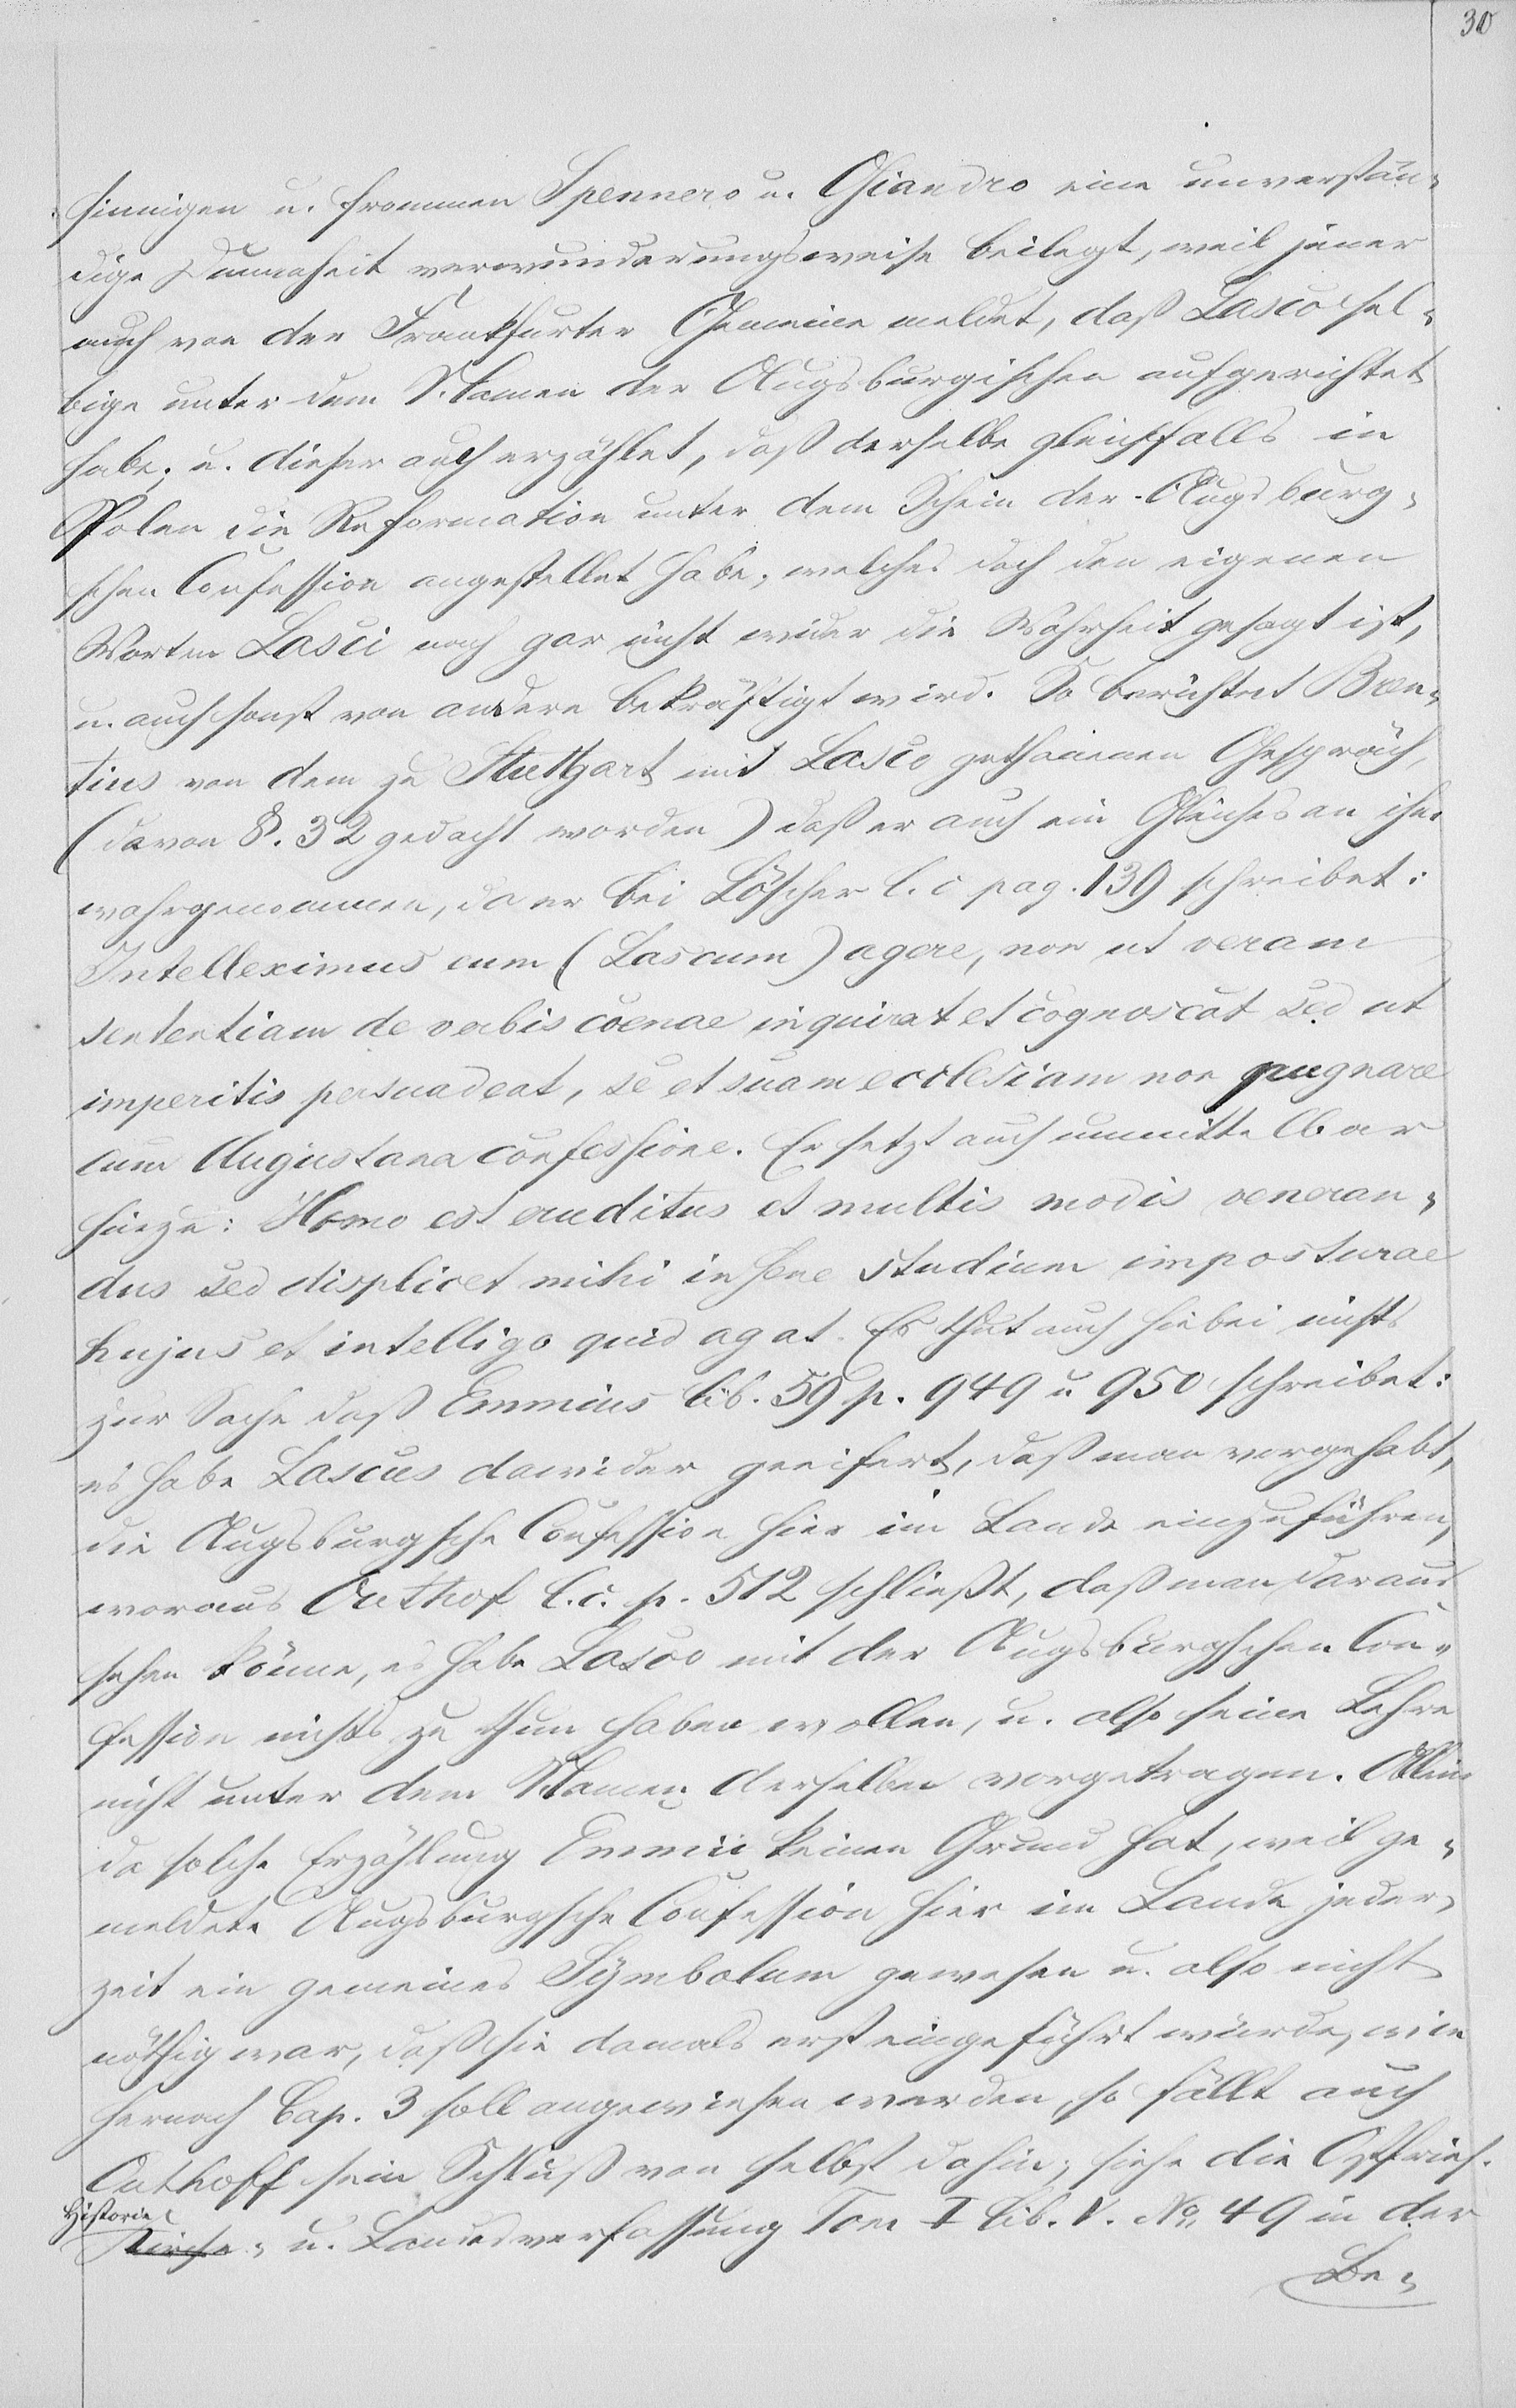 30
sinnigen u. frommen Spennero u. Osiandro eine unverstän-
dige Dummheit verwunderungsweise beilegt, weil jener
auch von der Frankfurter Gemeine meldet, daß Lasco sel-
bige unter dem Namen der Augsburgischen aufgerichtet
habe; u. dieser auch erzählet, daß derselbe gleichfalls in
Polen die Reformation unter dem Schein der Augsburg-
schen Confession angestellet habe, welches doch den eigenen
Worten Lasci nach gar nicht wider die Wahrheit gesagt ist,
u. auch sonst von andern bekräftigt wird. So berichtet Bren-
tius von dem zu Stuttgart mit Lasco gethanenen Gespräch,
(davon §. 32 gedacht worden) daß er auch ein Gleiches an ihm
wahrgenommen, da er bei Löscher l. c pag. 139 schreibet:
Intelleximus eum (Lascum) agere, non ut veram
sententiam de verbis coenae inquirat et cognoscat sed ut
imperitis persuadeat, se et suam ecclesiam non pugnare
cum Augustana confessione. Er setzt auch unmittelbar
hinzu: Homo est eruditus et multis modis veneran-
dus sed displicet mihi in sene studium imposturae
hujus et intelligo quid agat. Es thut auch hiebei nichts
zur Sache daß Emmius lib. 59 p. 949 u 950 schreibet:
es habe Lascus dawider geeifert, daß man vorgehabt,
die Augsburgsche Confession hier im Lande einzuführen,
woraus Outhof l. c. p. 512 schließt, daß man daraus
sehen könne, es habe Lasco mit der Augsburgschen Con-
fession nichts zu thun haben wollen, u. also seine Lehre
nicht unter dem Namen derselben vorgetragen. Allein
da solche Erzählung Emmii keinen Grund hat, weil ge-
meldete Augsburgsche Confession hier im Lande jeder-
zeit ein gemeines Symbolum gewesen u. also nicht
nöthig war, daß sie damals erst eingeführt würde, wie
hernach Cap. 3 soll angewiesen werden, so fällt auch
Outhoff sein Schluß von selbst dahin, siehe die Ostfries.
Historie
Kirche- u. Landesverfassung Tom I lib. V. No. 49 in der
Be-